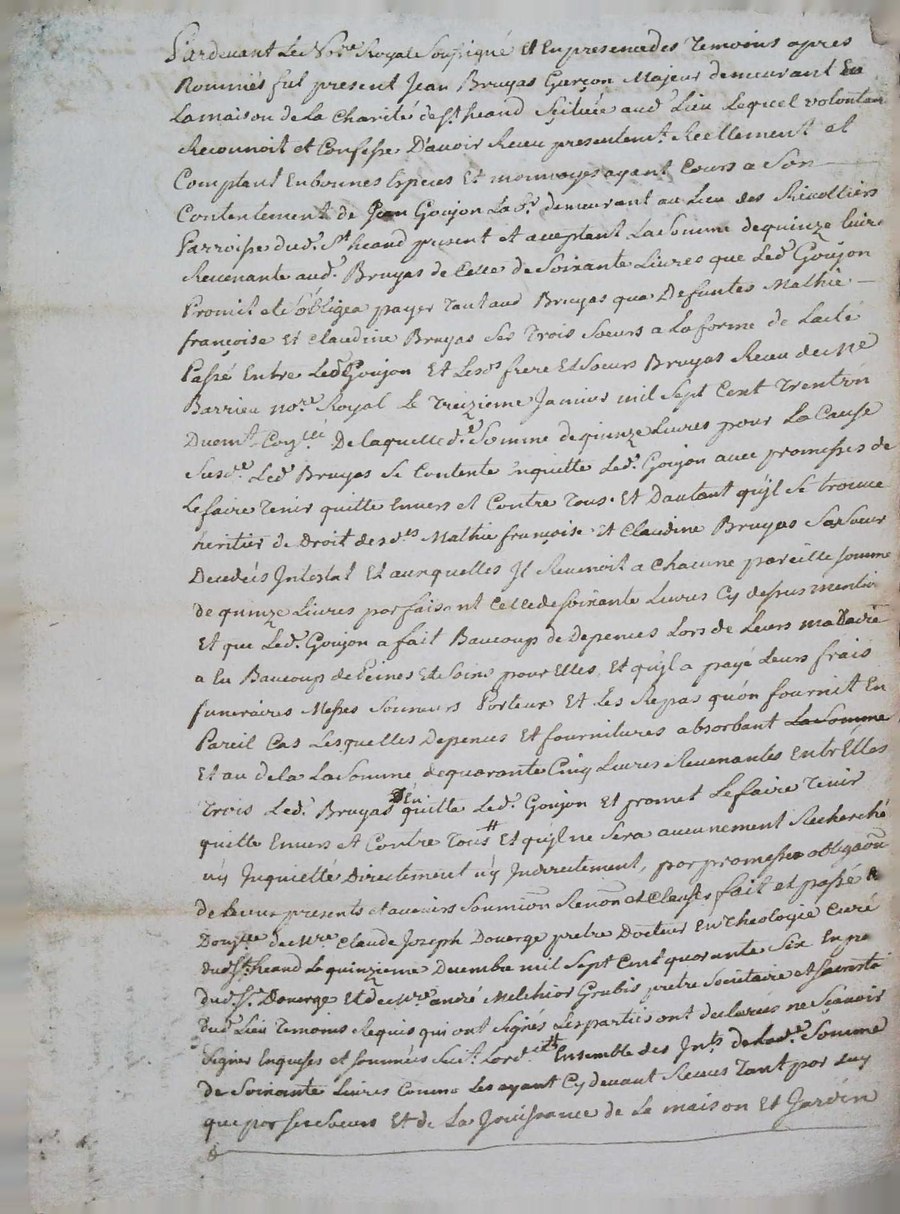 Pardevant Le Nre Royal Soussigné Et En presence des Temoins apres
Nommés fut present Jean Bruyas Garçon Majeur demeurant En
La maison de La Charité de St heand Scituée aud. Lieu Lequel volontairt
Reconnoit et Confesse D'avoir Receu presentemt. Reellement et
Comptant En bonnes Especes Et monnoyes ayant Cours a Son
Contentement de Jean Goujon Labr. demeurant au Lieu des
Parroisse dud. St heand present et aceptant La Somme de quinze livres
Revenante aud. Bruyas de Celle de Soixante Livres que Led. Goujon
Promit et s'obligea payer Tant aud Bruyas qua Defuntes Mathie
françoise Et Claudine Bruyas Ses Trois Soeurs a La forme de L'acte
Passé Entre Led. Goujon Et Lesds frere Et Soeurs Bruyas Receu de Me
Barrieu nore. Royal Le Treizieme Janvier mil Sept Cent Trente
Duemt. De laquelle de. Somme de quinze Livres pour La Cause
Susde. Led. Bruyas Se Contente Enquitte Led. Goujon avec promesses de
Le faire Tenir quitte Envers et Contre Tous. Et Dautant qu'jl Se trouve
heritier de Droit desdes Mathie françoise Et Claudine Bruyas Ses Soeurs
Decedées Jntestat Et auxquelles Jl Revenoit a Chacune pareille somme
de quinze Livres parfaisant Celle de soixante Livres Cy dessus
Et que Led. Goujon a fait Baucoup de Depences Lors de Leurs maladie
a Eu Baucoup de Peines Et de Soins pour Elles Et qu'jl a payé Leurs frais
funeraires Messes Sonneurs Porteur Et Les Repas qu'on fournit En
Pareil Cas Lesquelles Depences Et fournitures absorbant La Somme
Et au dela La Somme de quarante Cinq Livres Revenantes Entr'Elles
Trois Led. Bruyas D'En quitte Led. Goujon Et promet Le faire Tenir
quitte Envers Et Contre Tous # Et qu'jl ne Sera aucunement Recherché
ny Jnquietté Directement ny Jndirectement, par promesse obligaon
de Biens presents et avenirs Soumion Renon et Clauses fait et passé a
de Mre Claude Joseph Doverge pretre Docteur En Theologie Curé
dud. St heand Le quinzieme Decembre mil Sept Cent quarante Six En
dud. Sr. Doverge Et de Mre andré Melchior Grubis pretre Societaire et
dud. Lieu Temoins Requis qui ont Signés Les parties ont declarées ne Sçavoir
Signer Enquises et Sommées Suit. Lorde # Ensemble des Jnts. de Lade. Somme
de Soixante Livres Comme Les ayant Cy devant Receus Tant par Luy
que par Ses Soeurs Et de La Jouissance de La maison Et Jardin